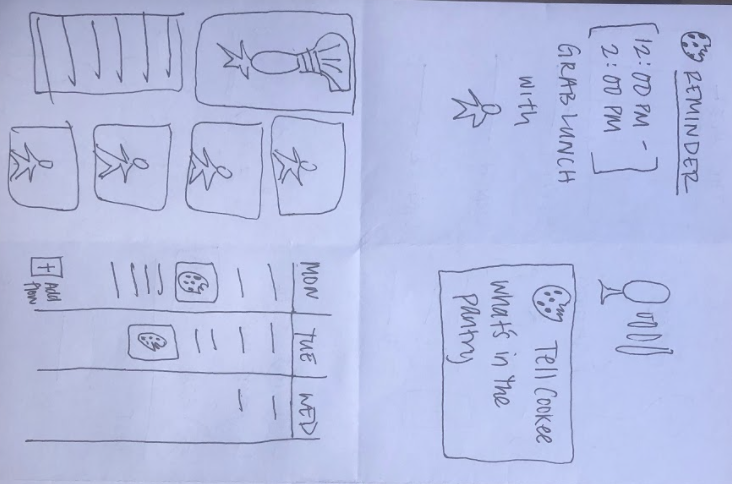 REMINDER
12:00 PM -
2:00 PM
GRAB LUNCH
with
Tell Cookee
what's in the
pantry
MON
TUE
WED
+ Add
Plan